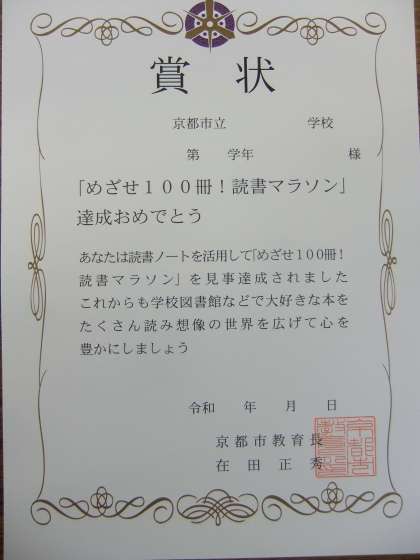 賞状
京都市立　学校
第　学年　様
「めざせ１００冊！読書マラソン」
達成おめでとう
あなたは読書ノートを活用して「めざせ１００冊！
読書マラソン」を見事達成されました
これからも学校図書館などで大好きな本を
たくさん読み想像の世界を広げて心を
豊かにしましょう
令和　年　月　日
京都市教育長
在田正秀